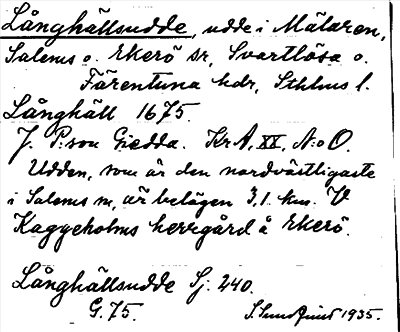 Långhällsudde, udde i Mälaren,
Salems o. Ekerö sr, Svartlösa o.
Färentuna hdr, Sthlms l.
Långhäll 1675.
J. P:son Giedda. Kr A, XX, N:o O.
Udden, som är den nordvästligaste
i Salems sn, är belägen 3,1 km. V
Kaggeholms herrgård å Ekerö.
Långhällsudde Sj. 240.
G. 75.
1935.